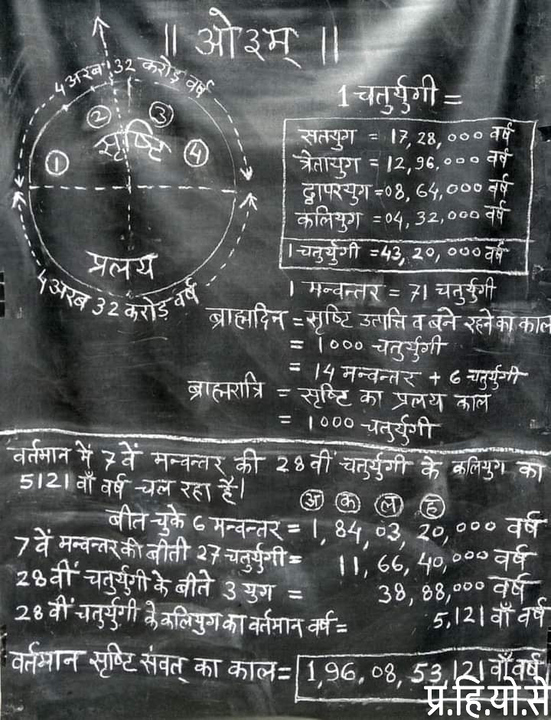 ॥ ओ३म् ॥
4 अरब 32 करोड़ वर्ष
1 2 3 4
सृष्टि
प्रलय
4 अरब 32 करोड़ वर्ष
1 चतुर्युगी =
सतयुग = 17,28,000 वर्ष
त्रेतायुग = 12,96,000 वर्ष
द्वापरयुग = 08,64,000 वर्ष
कलियुग = 04,32,000 वर्ष
1 चतुर्युगी = 43,20,000 वर्ष
1 मन्वन्तर = 71 चतुर्युगी
ब्राह्मदिन = सृष्टि उत्पत्ति व बने रहने का काल
= 1000 चतुर्युगी
= 14 मन्वन्तर + 6 चतुर्युगी
ब्राह्मरात्रि = सृष्टि का प्रलय काल
= 1000 चतुर्युगी
वर्तमान में 7 वें मन्वन्तर की 28 वीं चतुर्युगी के कलियुग का
5121 वाँ वर्ष चल रहा है।
अ क ल ह
बीत चुके 6 मन्वन्तर = 1,84,03,20,000 वर्ष
7 वें मन्वन्तर की बीती 27 चतुर्युगी = 11,66,40,000 वर्ष
28 वीं चतुर्युगी के बीते 3 युग = 38,88,000 वर्ष
28 वीं चतुर्युगी के कलियुग का वर्तमान वर्ष = 5,121 वाँ वर्ष
वर्तमान सृष्टि संवत् का काल = 1,96,08,53,121 वाँ वर्ष
प्र.हि.यो.से